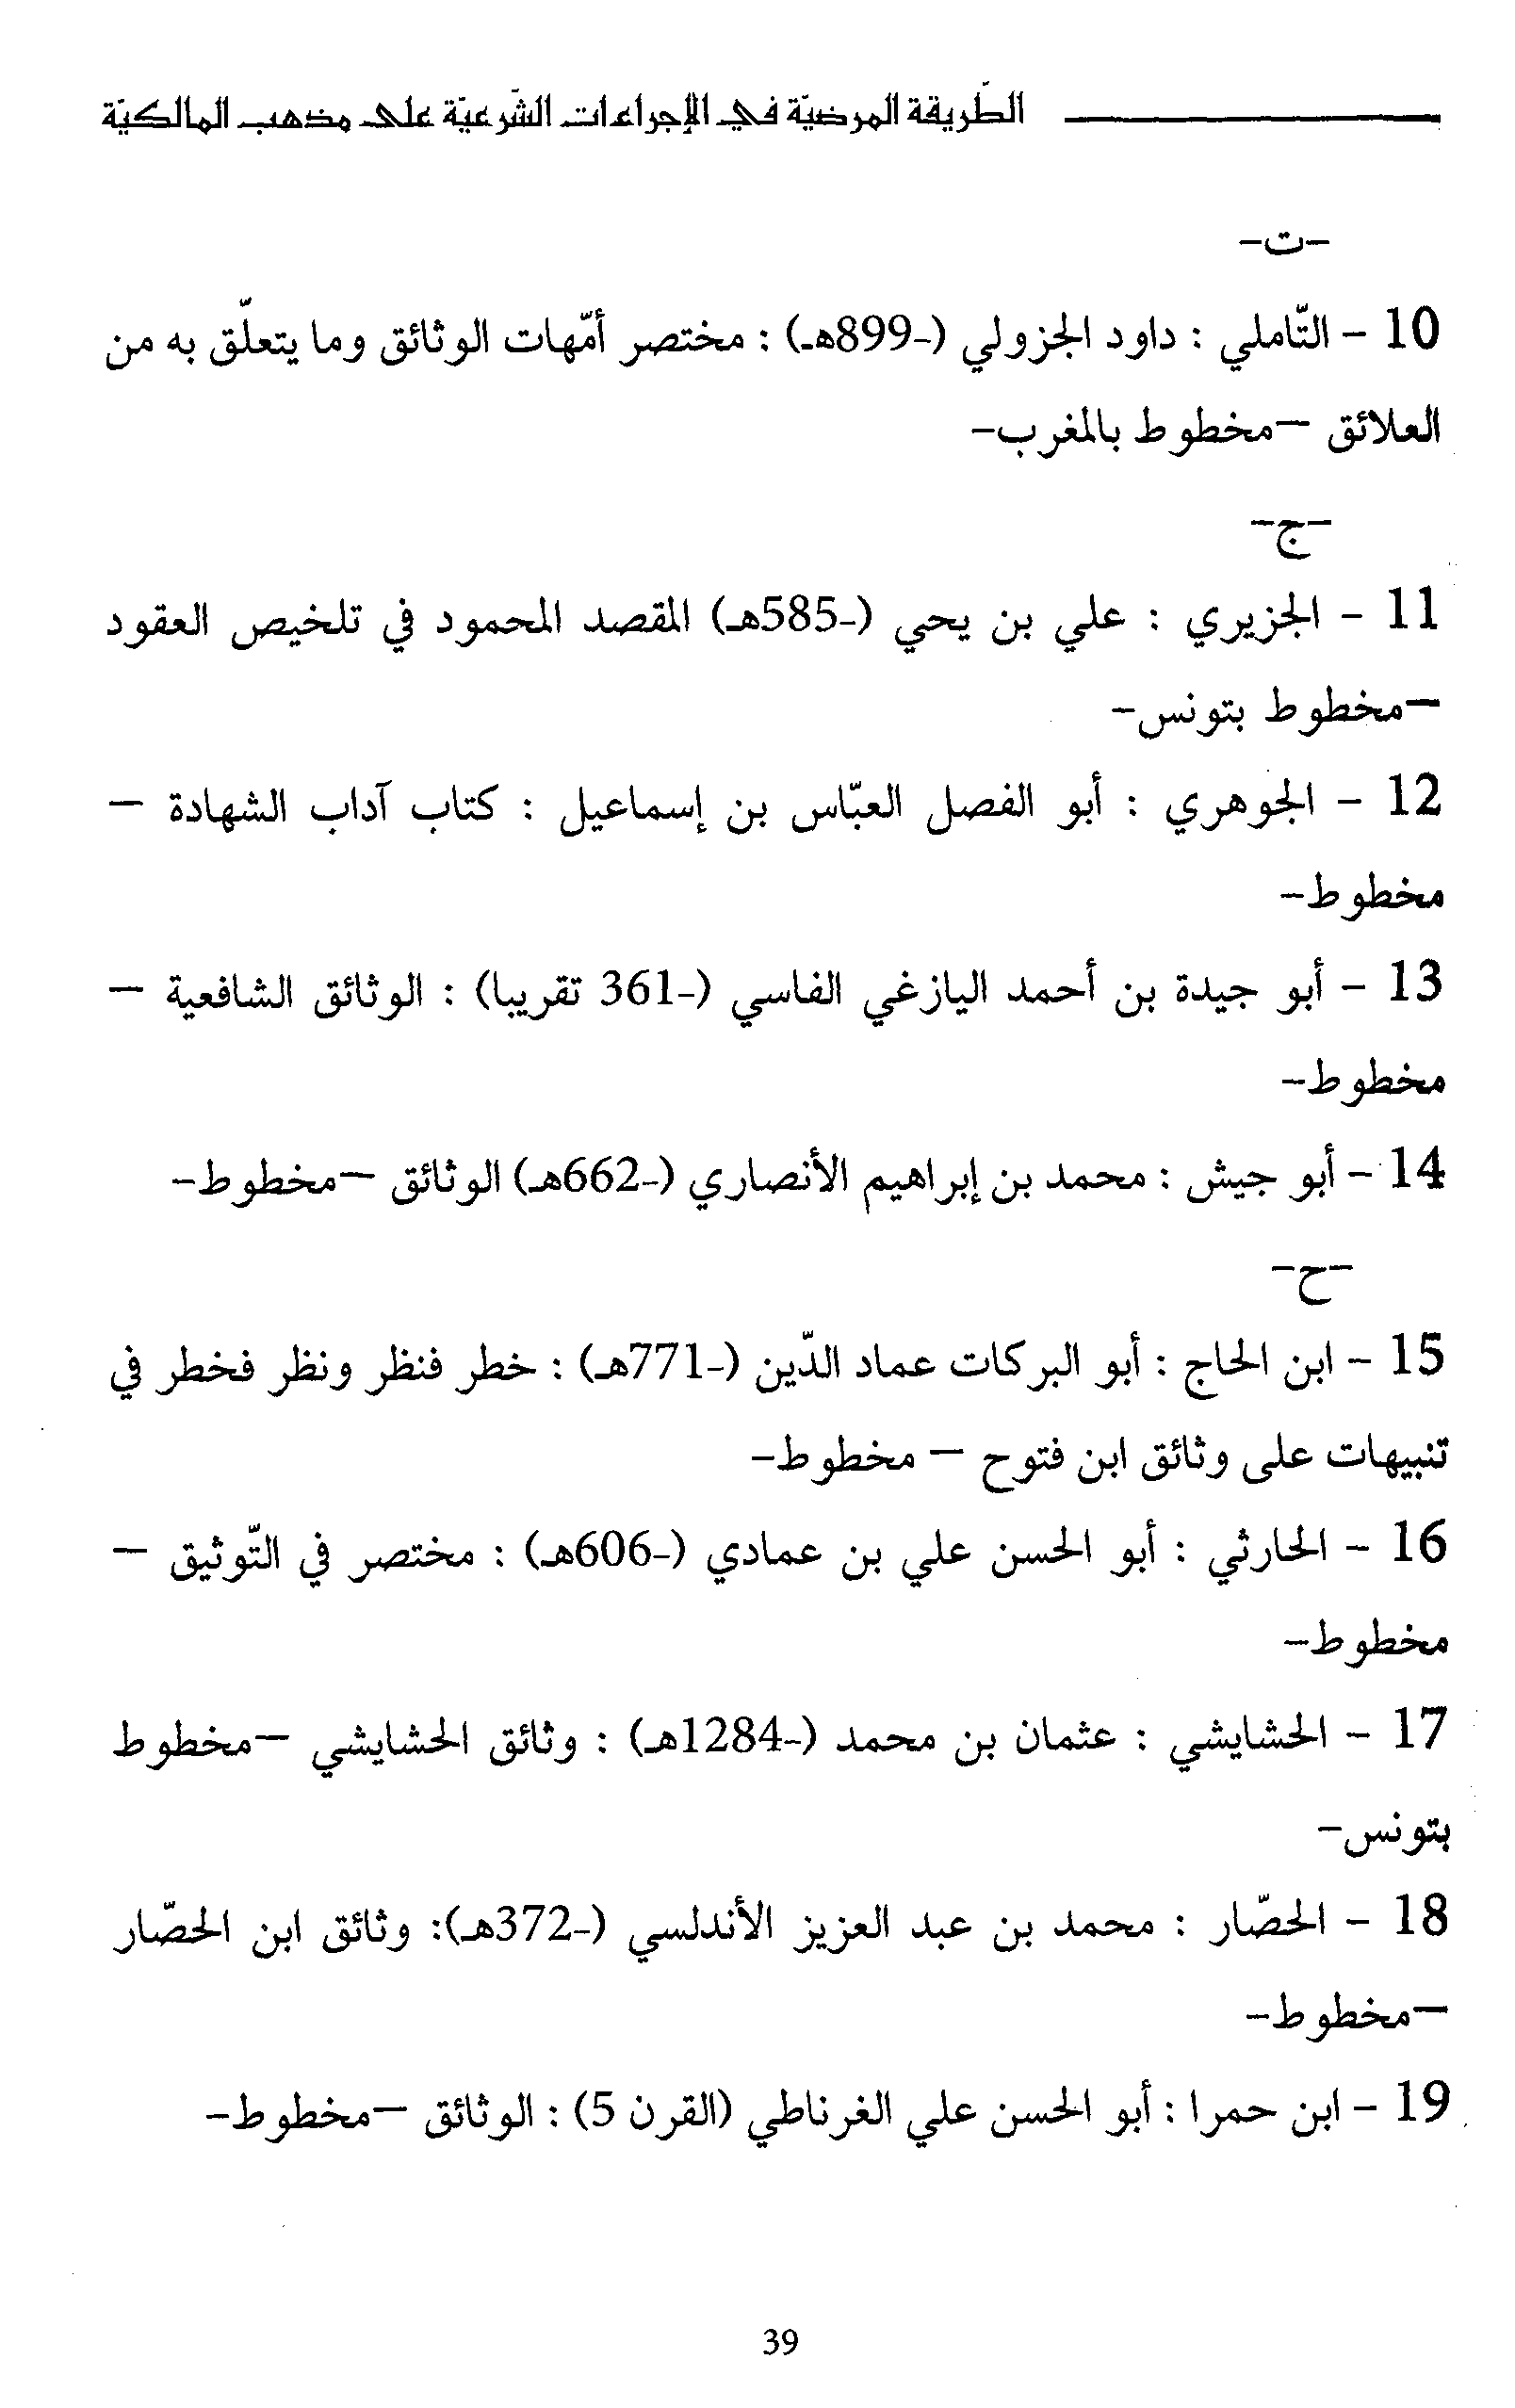 الطّريقة المرضيّة في الإجراءات الشّرعيّة على مذهب المالكيّة
-ت-
10 - التّاملي : داود الجزولي (-899هـ) : مختصر أمّهات الوثائق وما يتعلّق به من
العلائق –مخطوط بالمغرب-
-ج-
11 - الجزيري : علي بن يحي (-585هـ) المقصد المحمود في تلخيص العقود
–مخطوط بتونس-
12 - الجوهري : أبو الفصل العبّاس بن إسماعيل : كتاب آداب الشهادة –
مخطوط-
13 - أبو جيدة بن أحمد اليازغي الفاسي (-361 تقريبا) : الوثائق الشافعية –
مخطوط-
14 - أبو جيش : محمد بن إبراهيم الأنصاري (-662هـ) الوثائق –مخطوط-
-ح-
15 - ابن الحاج : أبو البركات عماد الدّين (-771هـ) : خطر فنظر ونظر فخطر في
تنبيهات على وثائق ابن فتوح – مخطوط-
16 - الحارثي : أبو الحسن علي بن عمادي (-606هـ) : مختصر في التّوثيق –
مخطوط-
17 - الحشايشي : عثمان بن محمد (-1284هـ) : وثائق الحشايشي –مخطوط
بتونس-
18 - الحصّار : محمد بن عبد العزيز الأندلسي (-372هـ): وثائق ابن الحصّار
–مخطوط-
19 - ابن حمرا : أبو الحسن علي الغرناطي (القرن 5) : الوثائق –مخطوط-
39